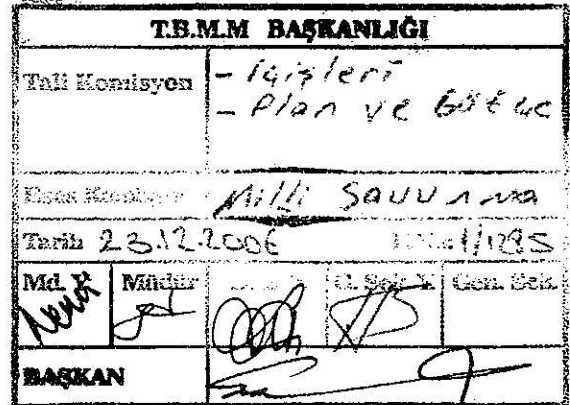 T.B.M.M BAŞKANLIĞI
Tali Komisyon - İçişleri
- Plan ve Bütçe
Esas Komisyon Milli Savunma
Tarih 23.12.2006 1/1285
Md. Y. Müdür G. Sek. Y. Gen. Sek.
BAŞKAN